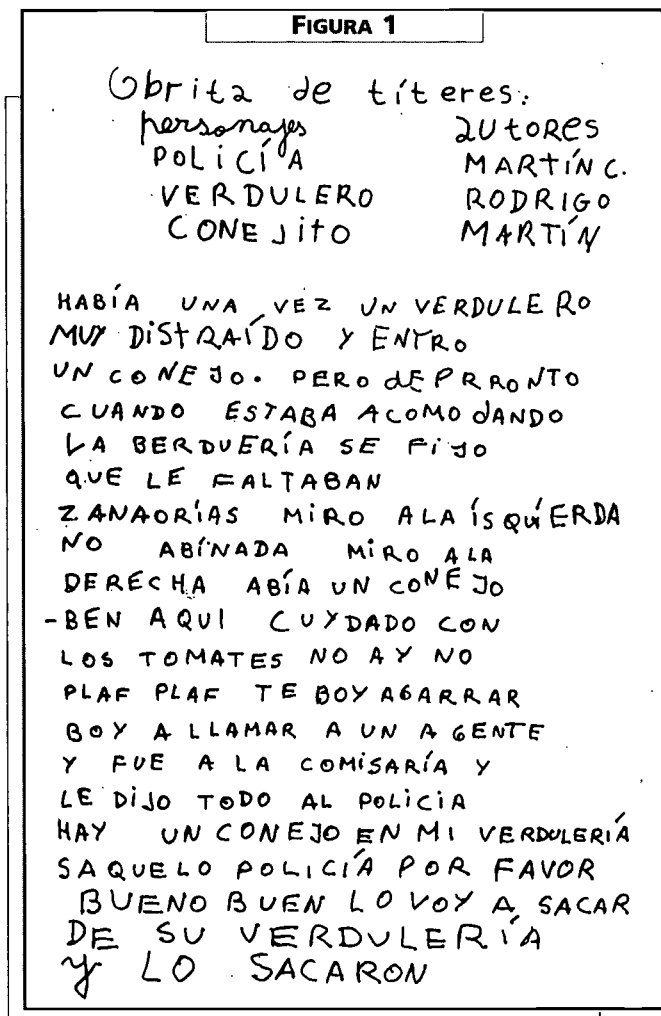 FIGURA 1
Obrita de títeres:
personajes autores
POLICÍA MARTÍN C.
VERDULERO RODRIGO
CONEJITO MARTÍN
HABÍA UNA VEZ UN VERDULERO
MUY DISTRAÍDO Y ENTRO
UN CONEJO. PERO DEPRRONTO
CUANDO ESTABA ACOMODANDO
LA BERDUERÍA SE FIJO
QUE LE FALTABAN
ZANAORÍAS MIRO ALA ÍSQUÍERDA
NO ABÍNADA MIRO ALA
DERECHA ABÍA UN CONEJO
-BEN AQUI CUYDADO CON
LOS TOMATES NO AY NO
PLAF PLAF TE BOY AGARRAR
BOY A LLAMAR A UN AGENTE
Y FUE A LA COMISARÍA Y
LE DIJO TODO AL POLICIA
HAY UN CONEJO EN MI VERDULERIA
SAQUELO POLICÍA POR FAVOR
BUENO BUEN LO VOY A SACAR
DE SU VERDULERÍA
Y LO SACARON